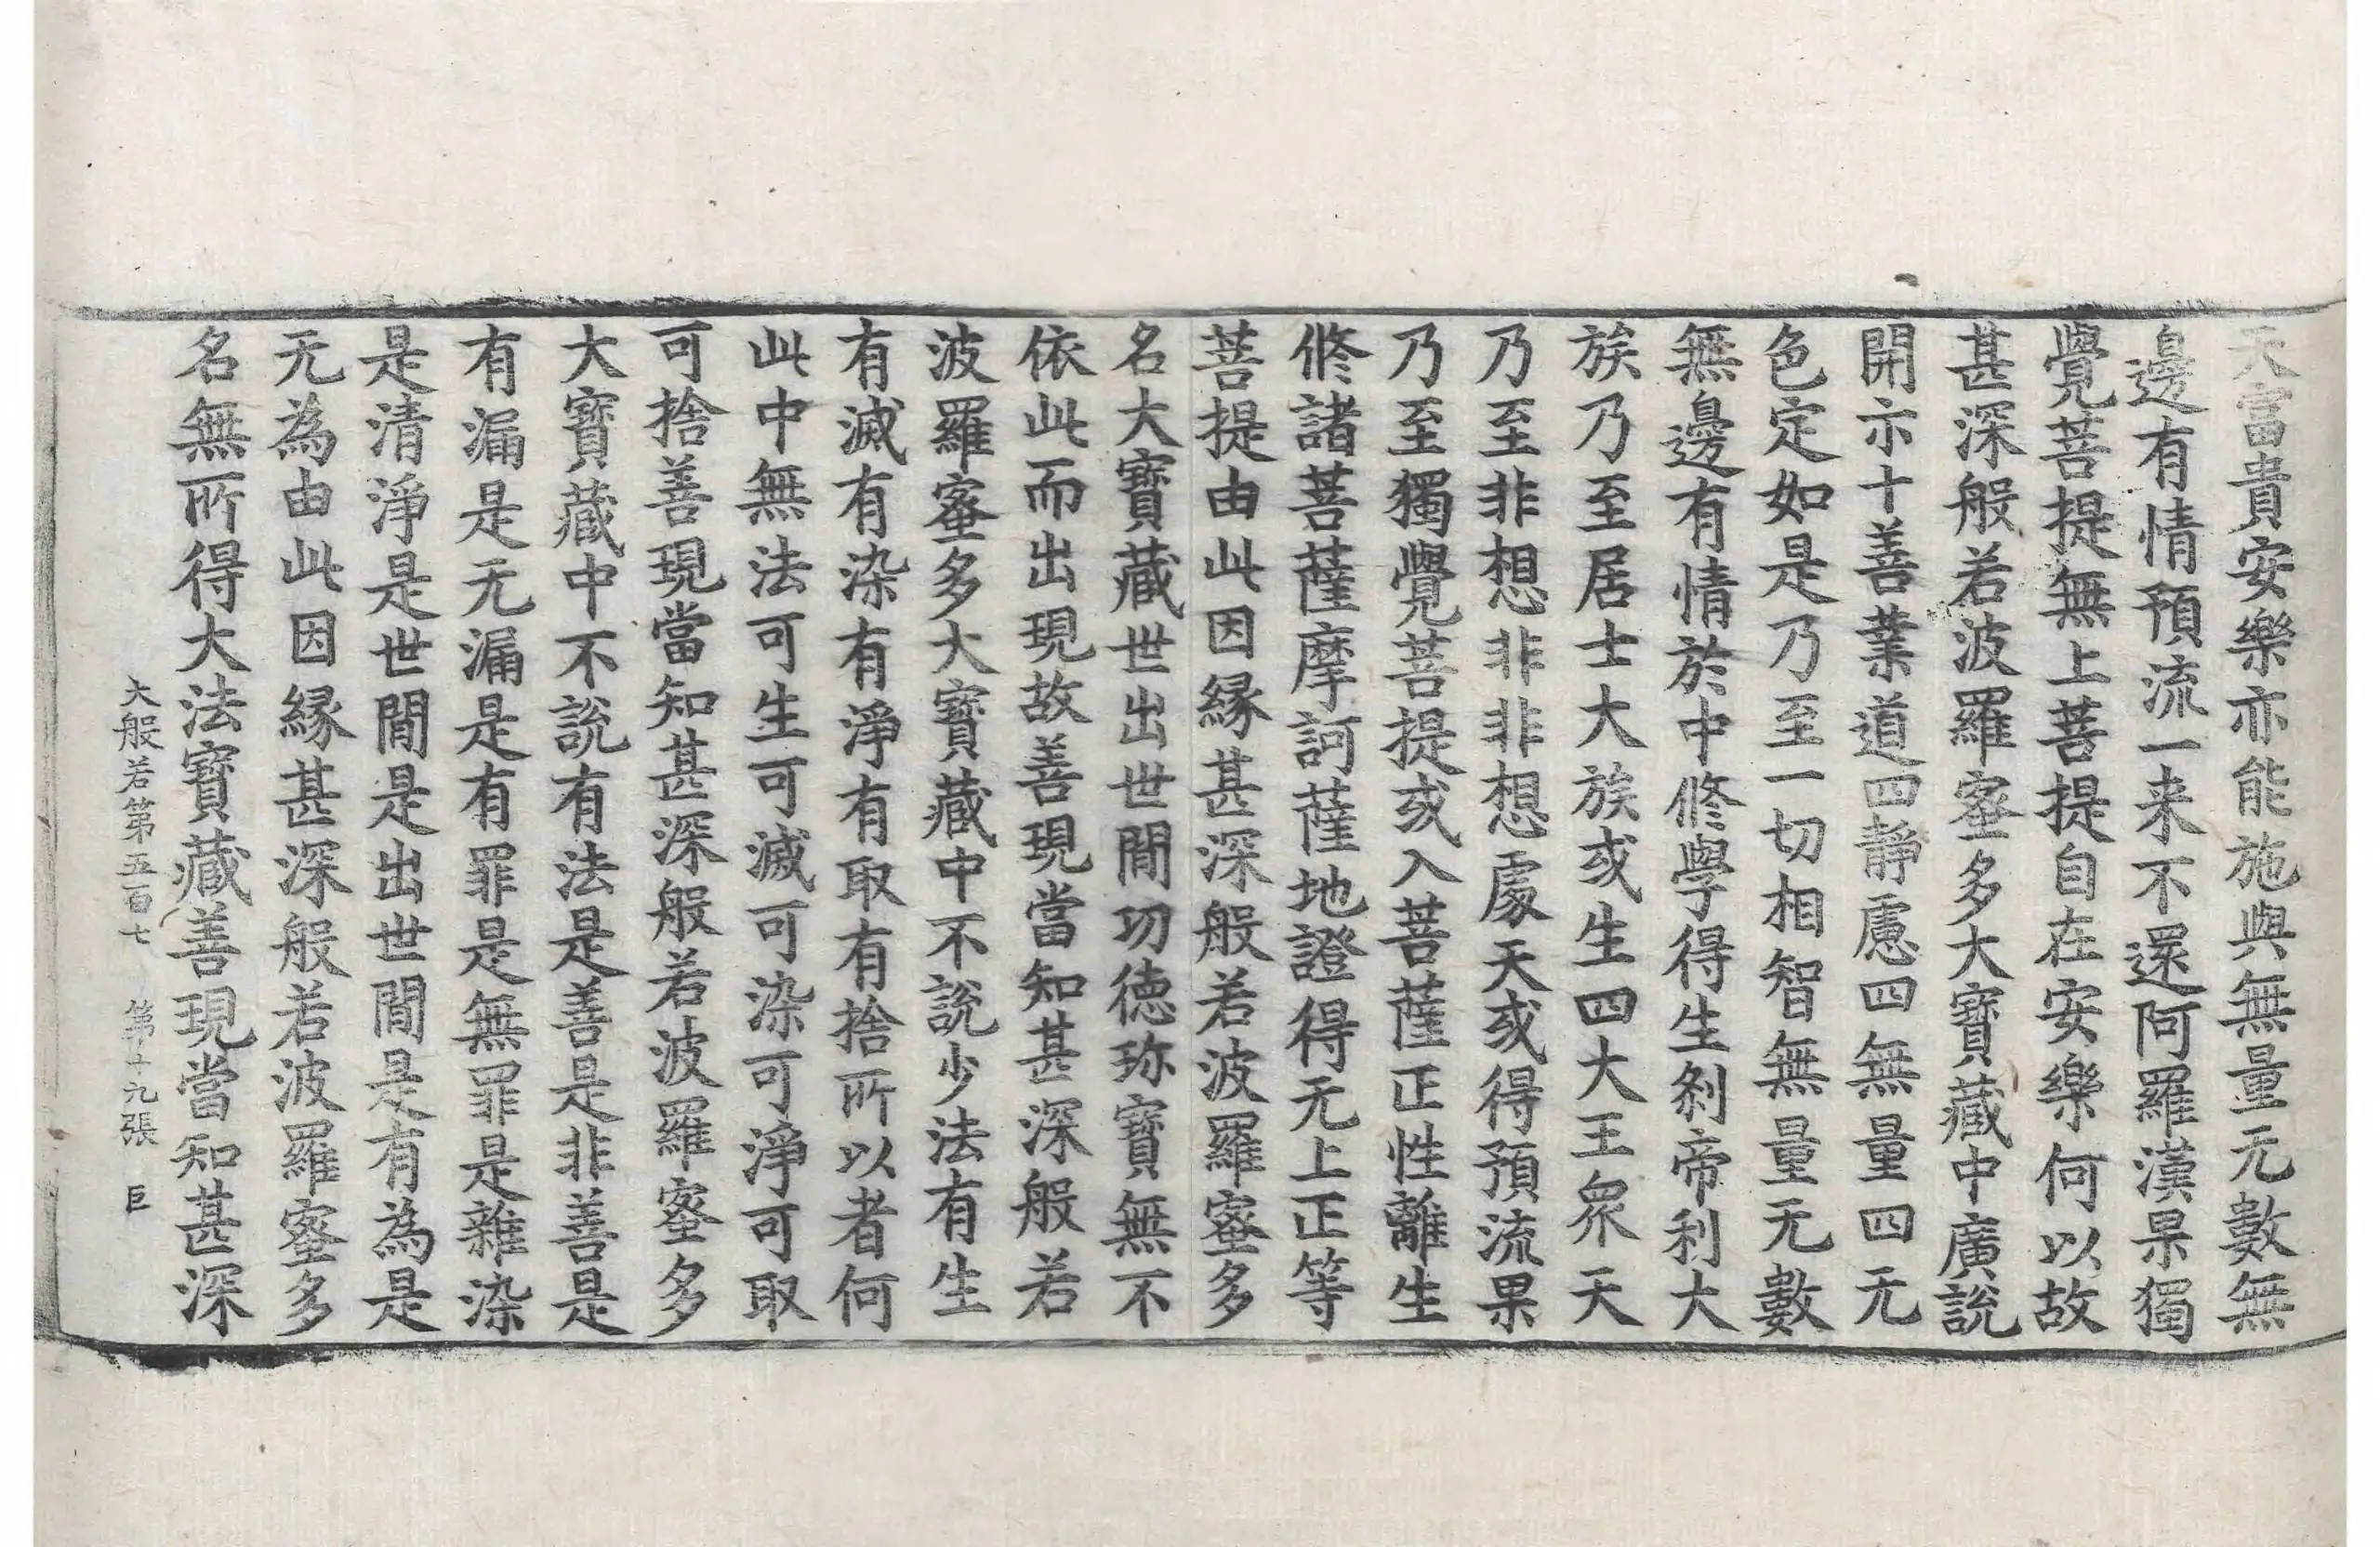 天富貴安樂亦能施與無量无數無
邊有情預流一来不還阿羅漢果獨
覺菩提無上菩提自在安樂何以故
甚深般若波羅蜜多大寶藏中廣說
開示十善業道四靜慮四無量四无
色定如是乃至一切相智無量无數
無邊有情於中修學得生剎帝利大
族乃至居士大族或生四大王衆天
乃至非想非非想處天或得預流果
乃至獨覺菩提或入菩薩正性離生
修諸菩薩摩訶薩地證得无上正等
菩提由此因緣甚深般若波羅蜜多
名大寶藏世出世間功德珎寶無不
依此而出現故善現當知甚深般若
波羅蜜多大寶藏中不說少法有生
有滅有染有淨有取有捨所以者何
此中無法可生可滅可染可淨可取
可捨善現當知甚深般若波羅蜜多
大寶藏中不說有法是善是非善是
有漏是无漏是有罪是無罪是雜染
是清淨是世間是出世間是有為是
无為由此因緣甚深般若波羅蜜多
名無所得大法寶藏善現當知甚深
大般若第五百七 第十九張 巨